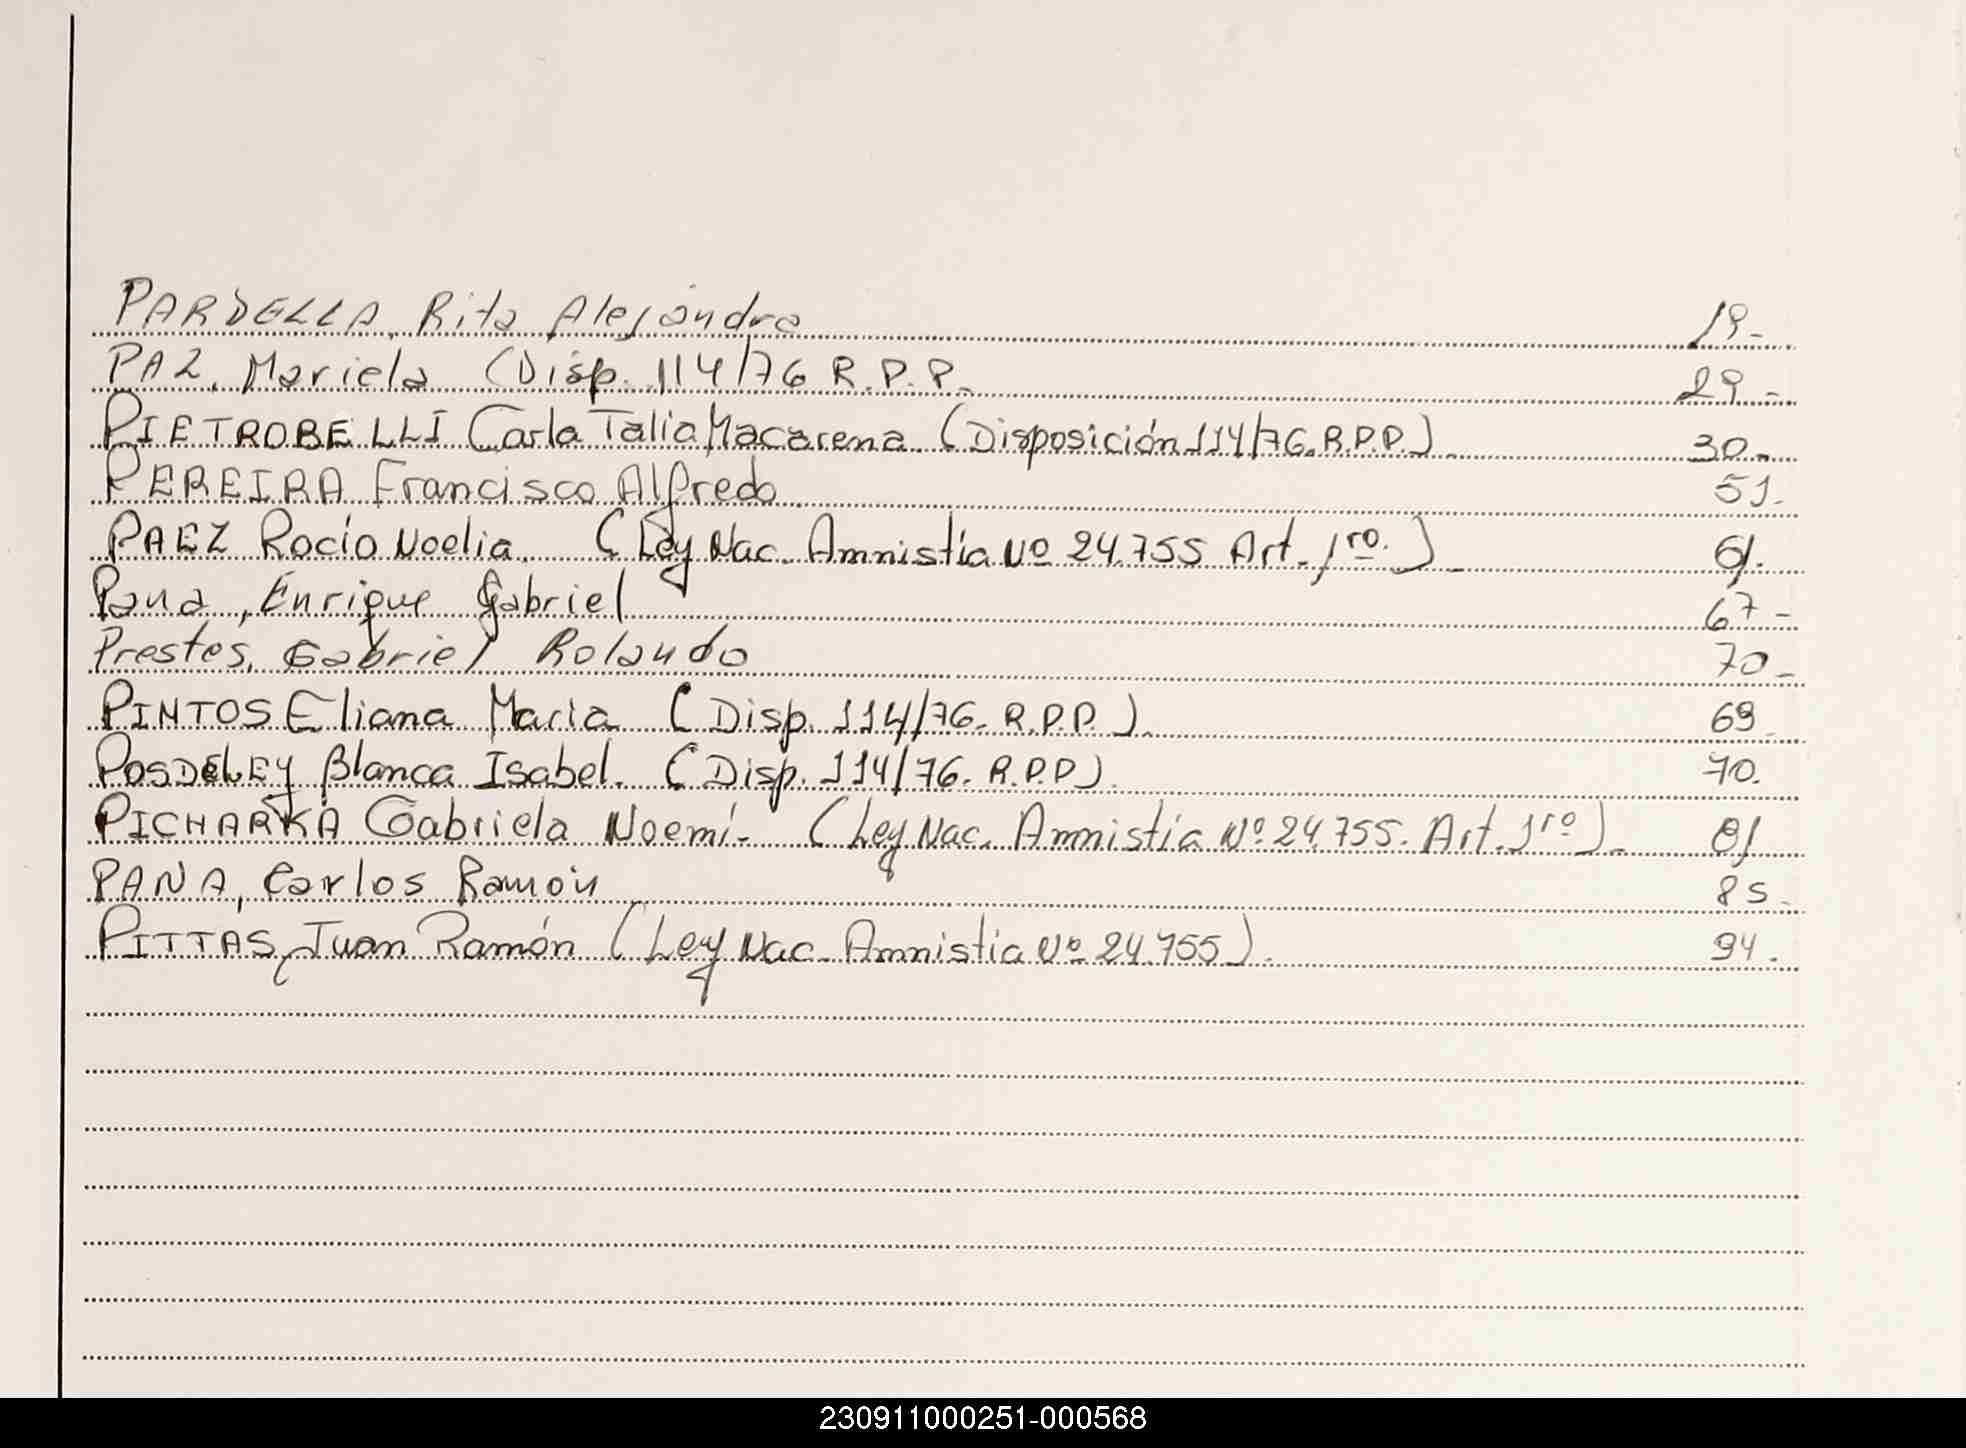 PARDELLA, Rita Alejandra 19-
PAZ, Mariela (Disp. 114/76 R.P.P. 29-
PIETROBELLI Carla Talia Macarena (Disposición 114/76. R.P.P.) 30-
PEREIRA Francisco Alfredo 51.
PAEZ Rocío Noelia. (Ley Nac. Amnistía Nº 24.755 Art. 1ro.) 61.
Pana, Enrique Gabriel 67-
Prestes, Gabriel Rolando 70-
PINTOS Eliana Maria (Disp. 114/76. R.P.P.) 69
POSDELEY Blanca Isabel. (Disp. 114/76. R.P.P) 70.
PICHARKA Gabriela Noemí- (Ley Nac. Amnistía Nº 24.755. Art. 1ro). 81
PANA, Carlos Ramón 85-
PITTAS, Juan Ramón (Ley Nac. Amnistia Nº 24.755). 94.
230911000251-000568